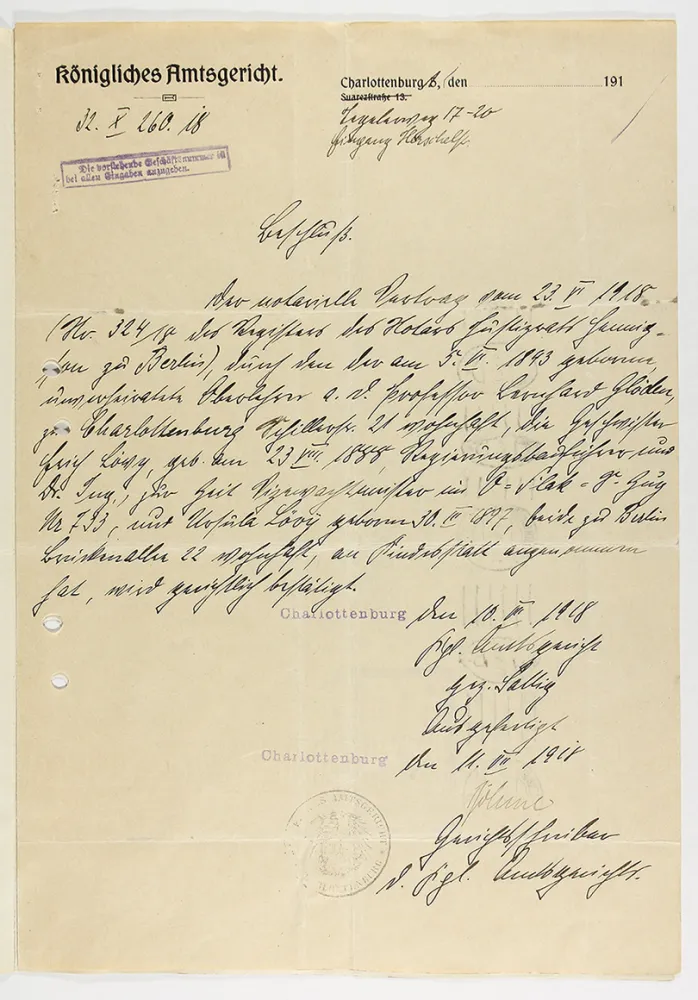 Königliches Amtsgericht.
32. X 260. 18
Die vorstehende Geschäftsnummer ist
bei allen Eingaben anzugeben.
Charlottenburg 5, den 191
Suarezstraße 13.
Tegelerweg 17-20
Eingang Herschelstr.
Beschluß.
Der notarielle Vertrag vom 23. VI 1918
(Nr. 324/18 des Registers des Notars Justizrats Hennig-
son zu Berlin), durch den der am 5. VI. 1893 geborene
unverheiratete Oberlehrer a. D. Professor Bernhard Glöden,
zu Charlottenburg Schillerstr. 21 wohnhaft, die Geschwister
Erich Lövy, geb. am 23. VIII. 1888, Regierungsbauführer und
Dr. Ing., zur Zeit Vizewachtmeister im Flak Zug
Nr 733, und Ursula Lövy geboren 30. III 1897, beide zu Berlin
22 wohnhaft, an Kindesstatt angenommen
hat, wird gerichtlich bestätigt.
Charlottenburg den 10. VII 1918
Kgl. Amtsgericht
gez.
Ausgefertigt
Charlottenburg den 11. VII 1918
Böhme
Gerichtsschreiber
d. Kgl. Amtsgerichts.
AMTSGERICHT